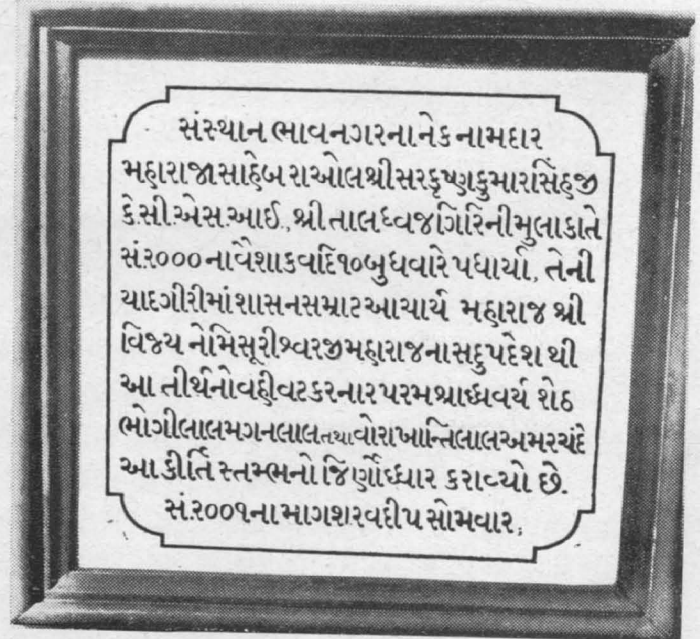 સંસ્થાન ભાવનગરના નેક નામદાર
મહારાજા સાહેબ રાઓલ શ્રી સર કૃષ્ણકુમારસિંહજી
કે. સી. એસ. આઈ., શ્રી તાલધ્વજગિરિની મુલાકાતે
સં. ૨૦૦૦ ના વૈશાક વદિ ૧૦ બુધવારે પધાર્યા, તેની
યાદગીરીમાં શાસનસમ્રાટ આચાર્ય મહારાજ શ્રી
વિજય નેમિસૂરીશ્વરજી મહારાજના સદુપદેશ થી
આ તીર્થનો વહીવટ કરનાર પરમ શ્રાધ્ધવર્ય શેઠ
ભોગીલાલ મગનલાલ તથા વોરા ખાન્તિલાલ અમરચંદે
આ કીર્તિસ્તમ્ભનો જિર્ણોધ્ધાર કરાવ્યો છે.
સં. ૨૦૦૧ ના માગશર વદી ૫ સોમવાર;